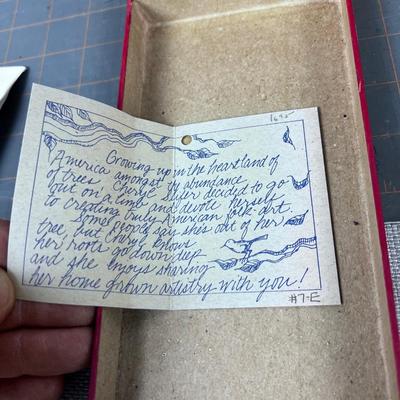 Growing up in the heartland of
America amongst the abundance
of trees Cheryl decided to go
out on a limb and devote herself
to creating truly American folk art.
Some say she's out of her
tree, but Cheryl knows
her roots go down deep
and she enjoys sharing
her home grown artistry with you!
#7-E